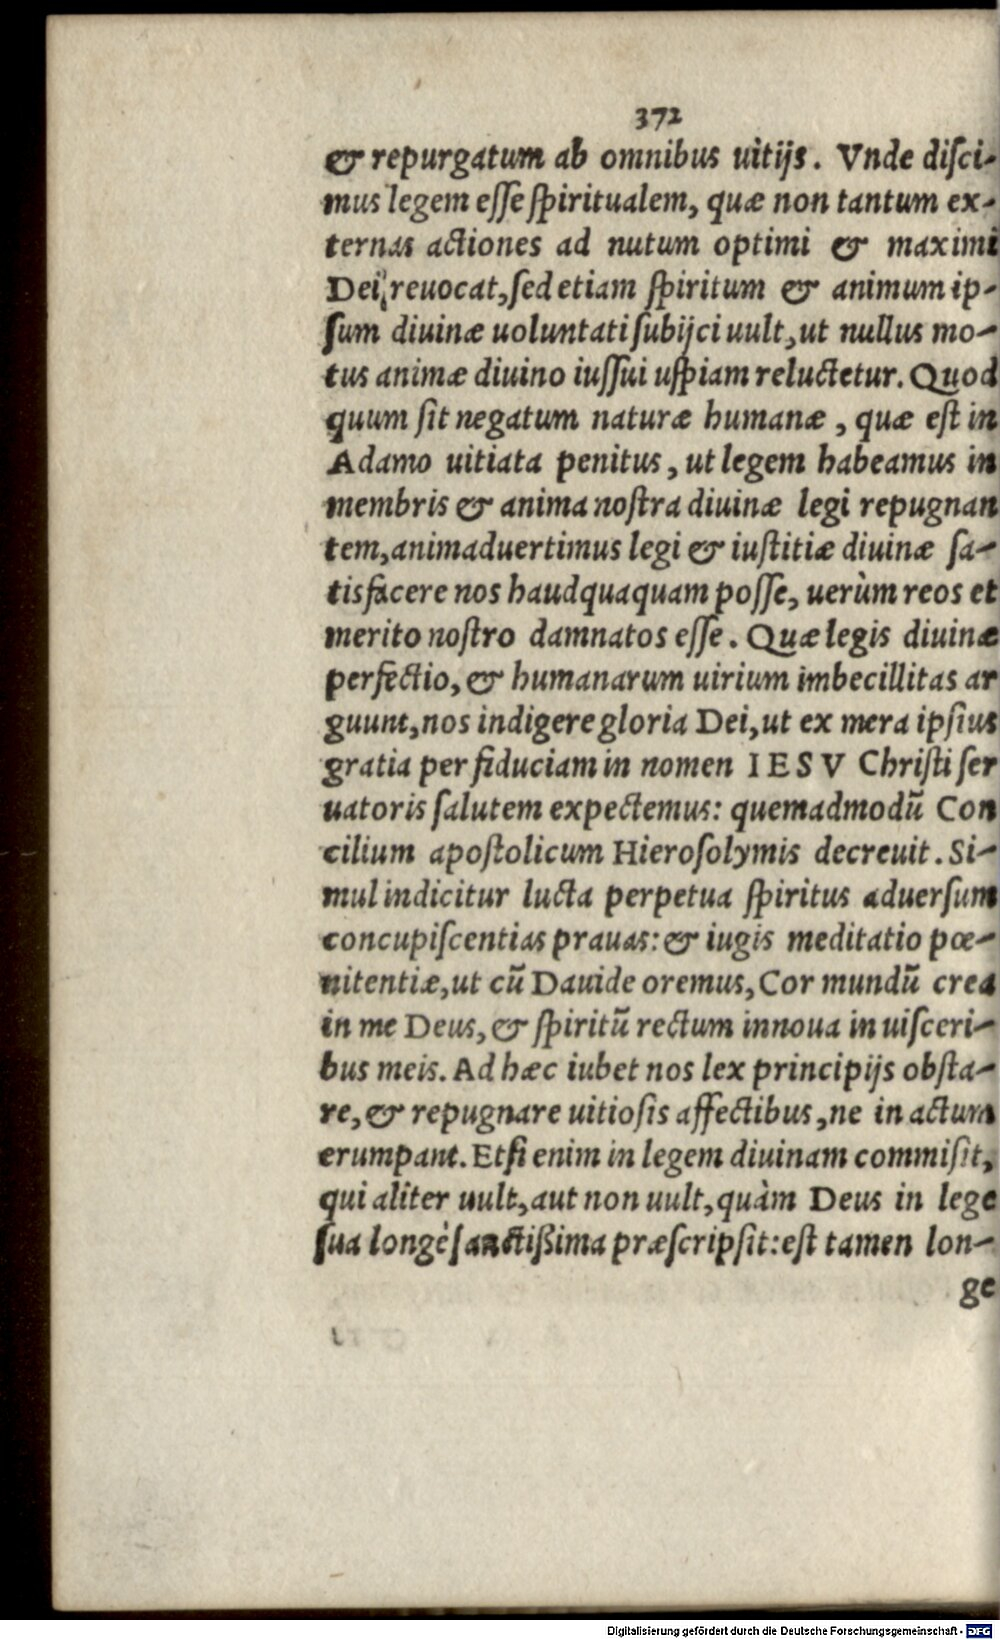 372
& repurgatum ab omnibus uitijs. Vnde disci-
mus legem esse spiritualem, quæ non tantum ex-
ternas actiones ad nutum optimi & maximi
Dei reuocat, sed etiam spiritum & animum ip-
sum diuinæ uoluntati subijci uult, ut nullus mo-
tus animæ diuino iussui uspiam reluctetur. Quod
quum sit negatum naturæ humanæ, quæ est in
Adamo uitiata penitus, ut legem habeamus in
membris & anima nostra diuinæ legi repugnan
tem, animaduertimus legi & iustitiæ diuinæ sa-
tisfacere nos haudquaquam posse, uerùm reos et
merito nostro damnatos esse. Quæ legis diuinæ
perfectio, & humanarum uirium imbecillitas ar
guunt, nos indigere gloria Dei, ut ex mera ipsius
gratia per fiduciam in nomen IESV Christi ser
uatoris salutem expectemus: quemadmodū Con
cilium apostolicum Hierosolymis decreuit. Si-
mul indicitur lucta perpetua spiritus aduersum
concupiscentias prauas: & iugis meditatio pœ-
nitentiæ, ut cū Dauide oremus, Cor mundū crea
in me Deus, & spiritū rectum innoua in uisceri-
bus meis. Ad hæc iubet nos lex principijs obsta-
re, & repugnare uitiosis affectibus, ne in actum
erumpant. Etsi enim in legem diuinam commisit,
qui aliter uult, aut non uult, quàm Deus in lege
sua longè sanctißima præscripsit: est tamen lon-
ge
Digitalisierung gefördert durch die Deutsche Forschungsgemeinschaft - DFG